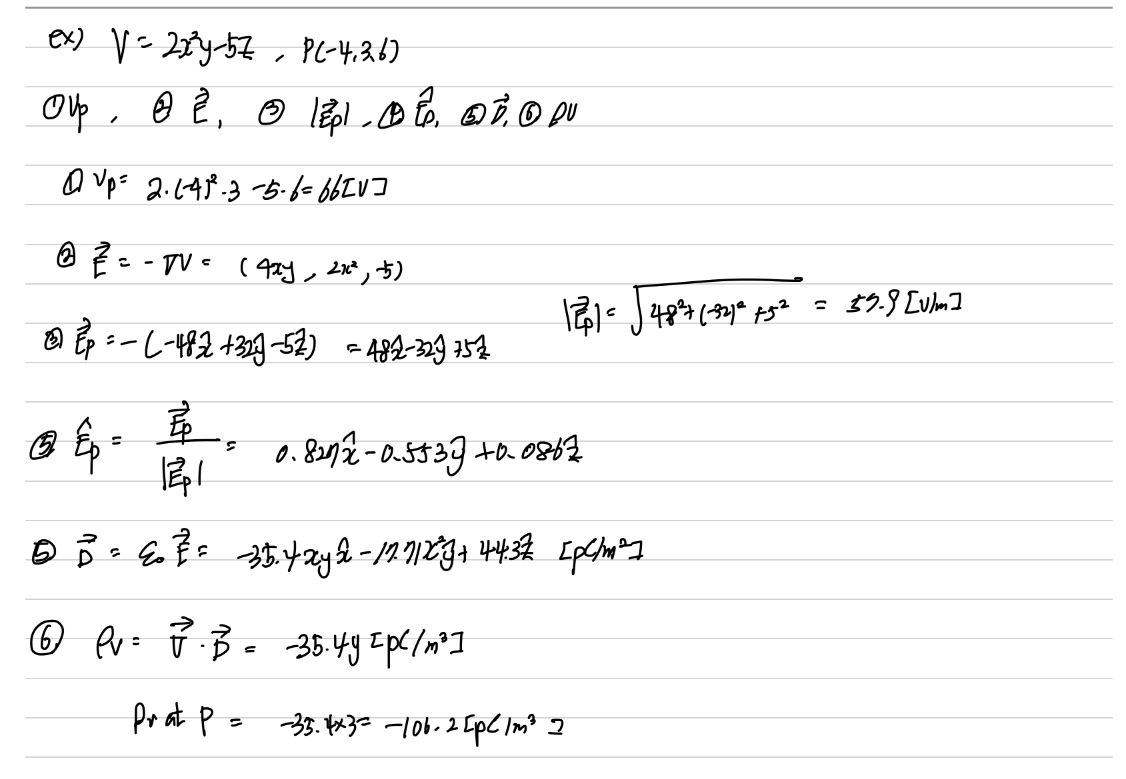 ex) V = 2x²y-5z , P(-4,3,6)
① Vp , ② E⃗, ③ |E⃗p| , ④ Êp, ⑤ D⃗, ⑥ ρv
① Vp = 2·(-4)²·3 -5·6 = 66[V]
② E⃗ = -∇V = (4xy , 2x², -5)
③ E⃗p = -(-48x̂ +32ŷ -5ẑ) = 48x̂-32ŷ+5ẑ
|E⃗p| = √48²+(-32)²+5² = 57.9 [V/m]
⑤ Êp = E⃗p / |E⃗p| = 0.829x̂-0.553ŷ+0.086ẑ
⑤ D⃗ = ε₀E⃗ = -35.4xyx̂-17.71x²ŷ+44.3ẑ [pC/m²]
⑥ ρv = ∇⃗·D⃗ = -35.4y [pC/m³]
ρv at P = -35.4×3= -106.2 [pC/m³]